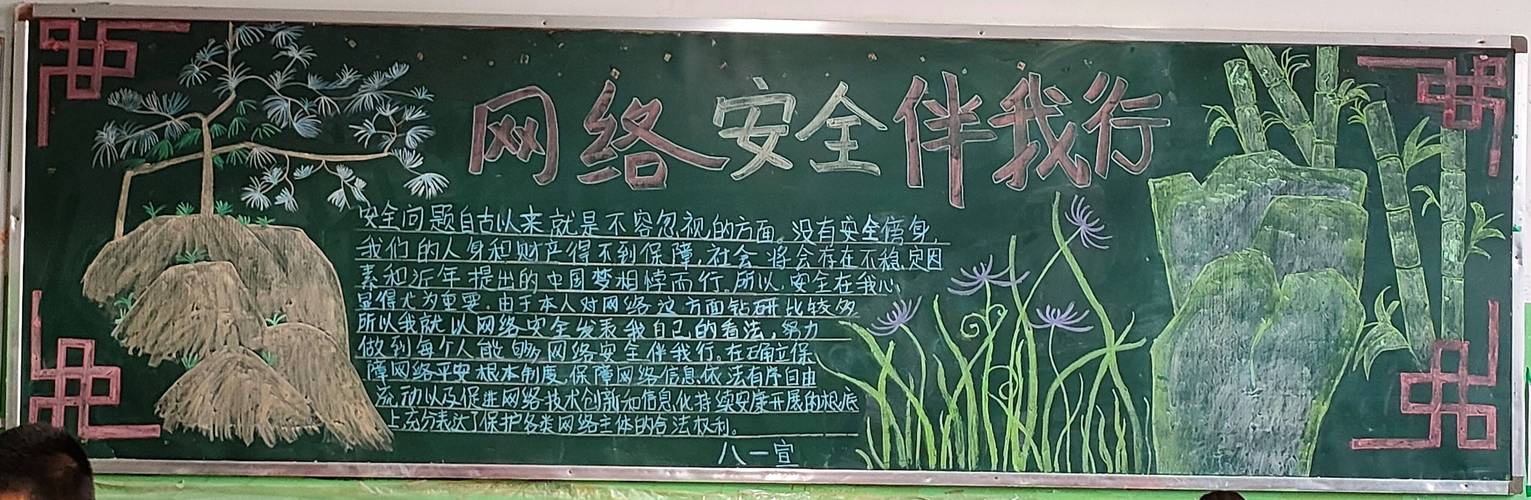 网络安全伴我行
安全问题自古以来就是不容忽视的方面。没有安全傍身,
我们的人身和财产得不到保障,社会将会存在不稳定因
素和近年提出的中国梦相悖而行。所以,安全在我心,
显得尤为重要。由于本人对网络这方面钻研比较多
所以我就以网络安全发表我自己的看法,努力
做到每个人能够网络安全伴我行。在确立保
障网络平安根本制度、保障网络信息依法有序自由
流动以及促进网络技术创新和信息化持续安康开展的根底
上充分表达了保护各类网络主体的合法权利。
八一宣